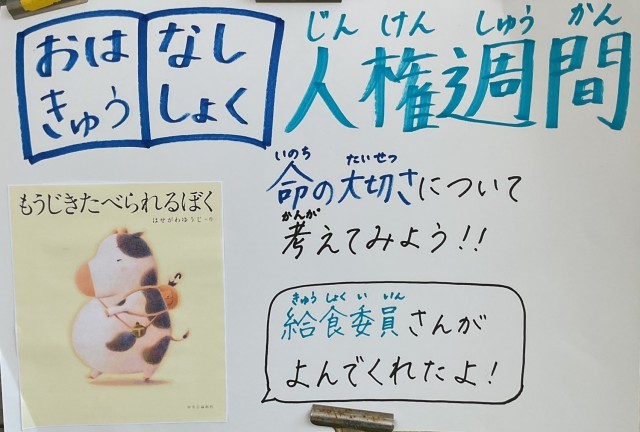 おはなし
きゅうしょく
じんけんしゅうかん
人権週間
いのち たいせつ
命の大切さについて
かんが
考えてみよう!!
もうじきたべられるぼく
はせがわゆうじ・作
中央公論新社
きゅうしょくいいん
給食委員さんが
よんでくれたよ!